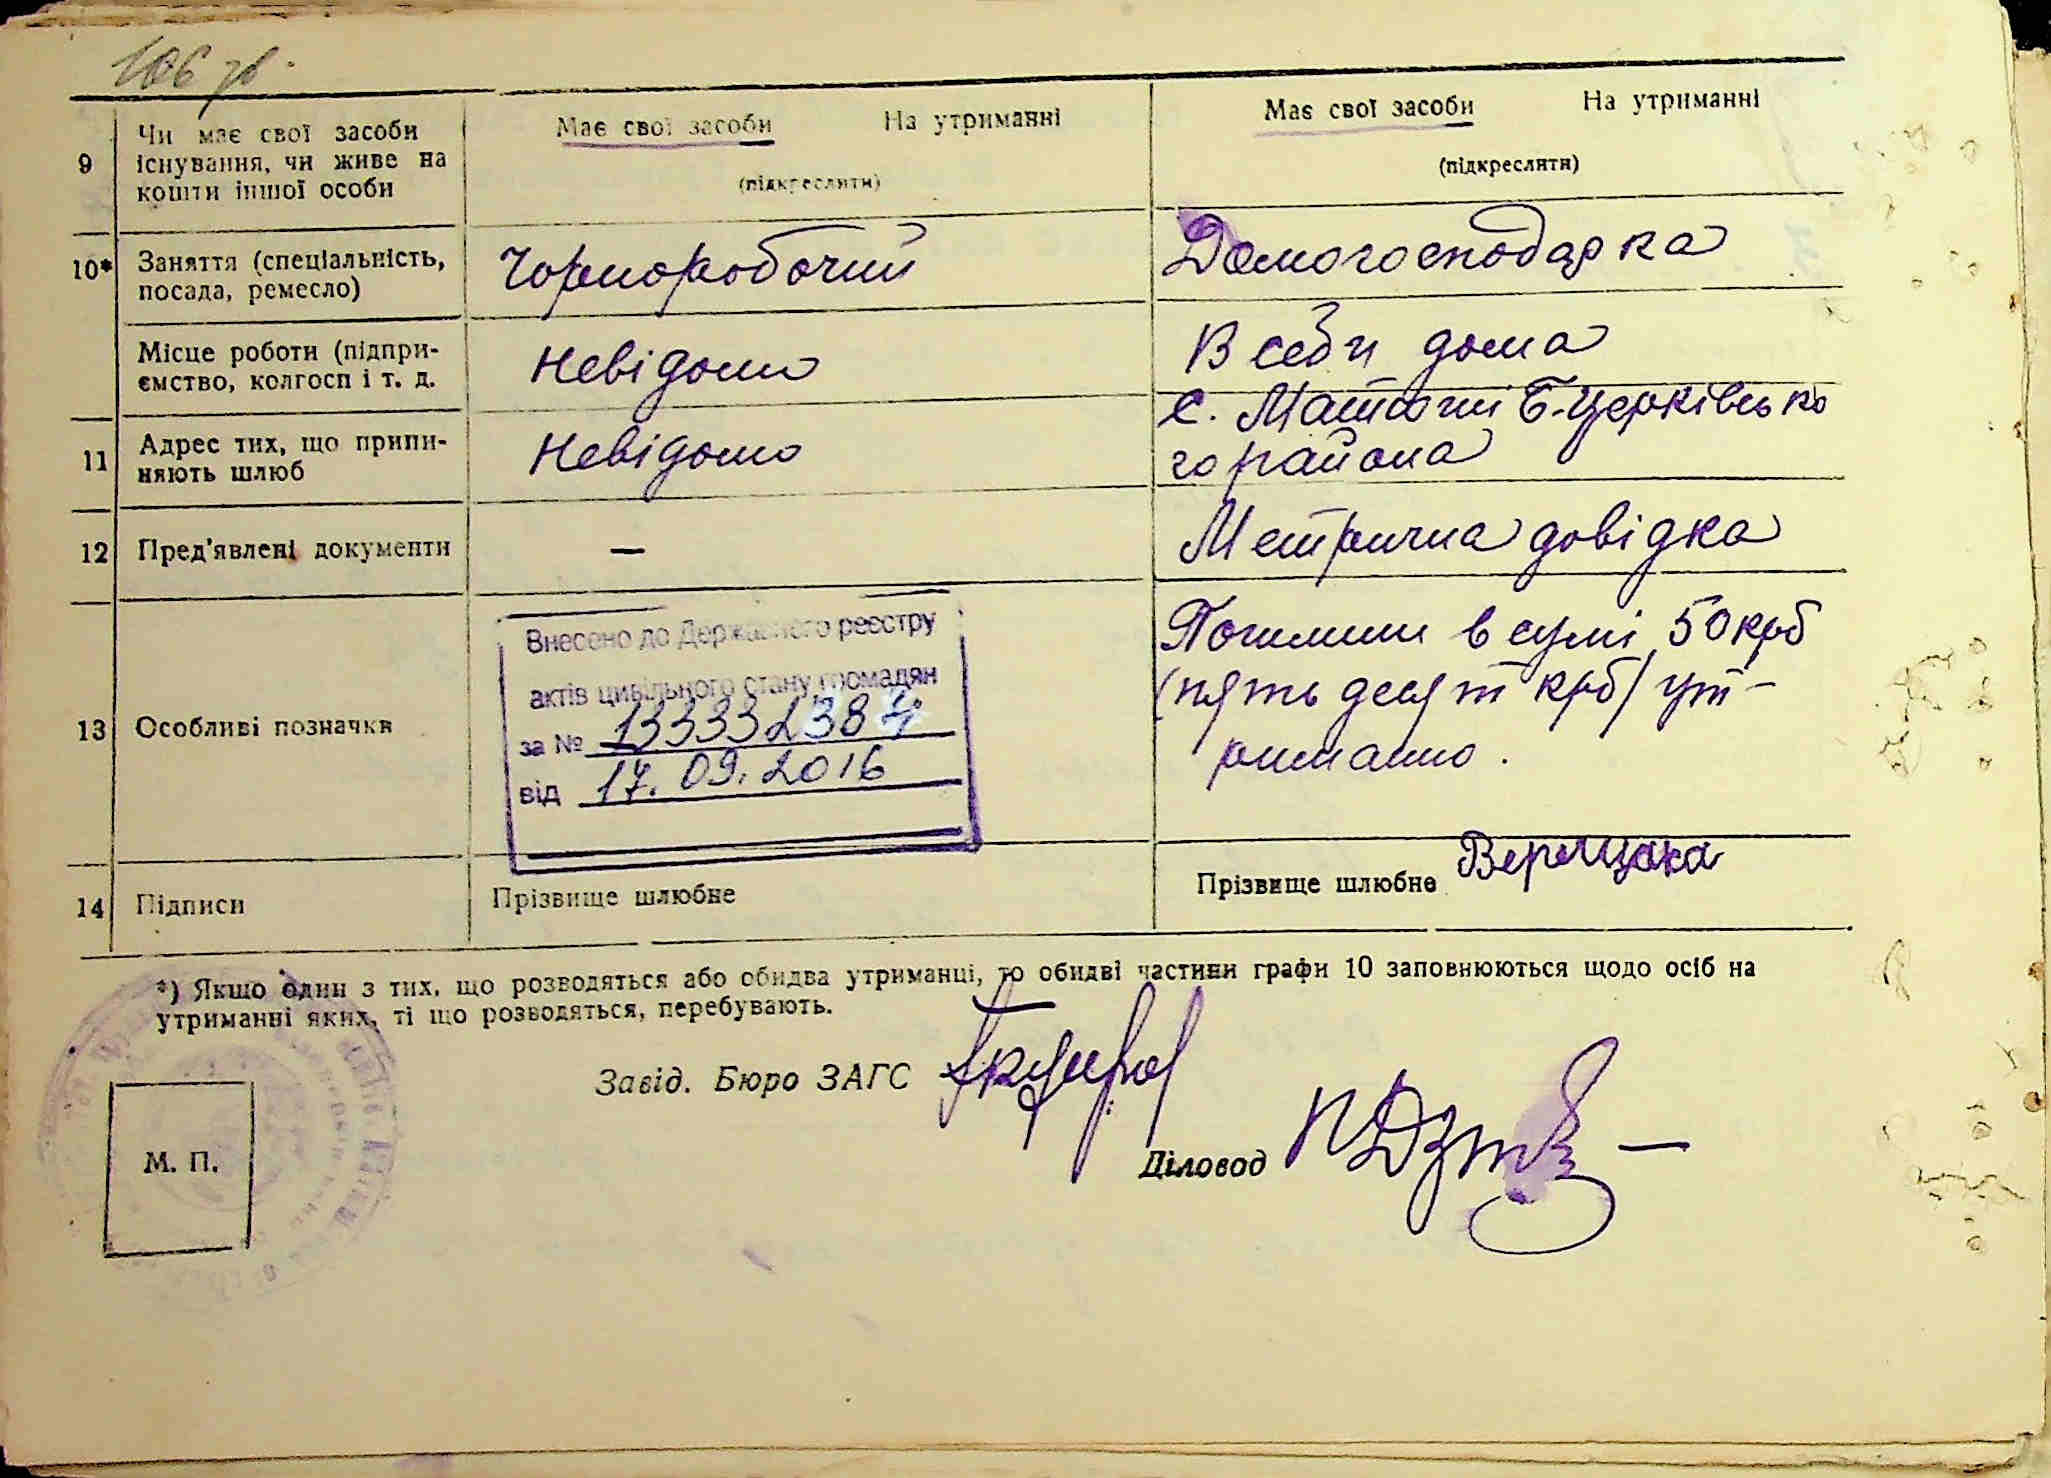 106 зв.
9
Чи має свої засоби
існування, чи живе на
кошти іншої особи
Має свої засоби На утриманні
(підкреслити)
Має свої засоби На утриманні
(підкреслити)
10*
Заняття (спеціальність,
посада, ремесло)
Чорноробочий
Домогосподарка
Місце роботи (підпри-
ємство, колгосп і т. д.
Невідомо
В себи дома
11
Адрес тих, що припи-
няють шлюб
Невідомо
с. Матюші Б-Церківсько
го района
12
Пред'явлені документи
—
Метрична довідка
13
Особливі позначки
Внесено до Державного реєстру
актів цивільного стану громадян
за №
від 17.09.2016
в сумі 50 крб
(пять десят крб) ут-
римано.
14
Підписи
Прізвище шлюбне
Прізвище шлюбне Верещака
*) Якщо один з тих, що розводяться або обидва утриманці, то обидві частини графи 10 заповнюються щодо осіб на
утриманні яких, ті що розводяться, перебувають.
Завід. Бюро ЗАГС
Діловод
М. П.